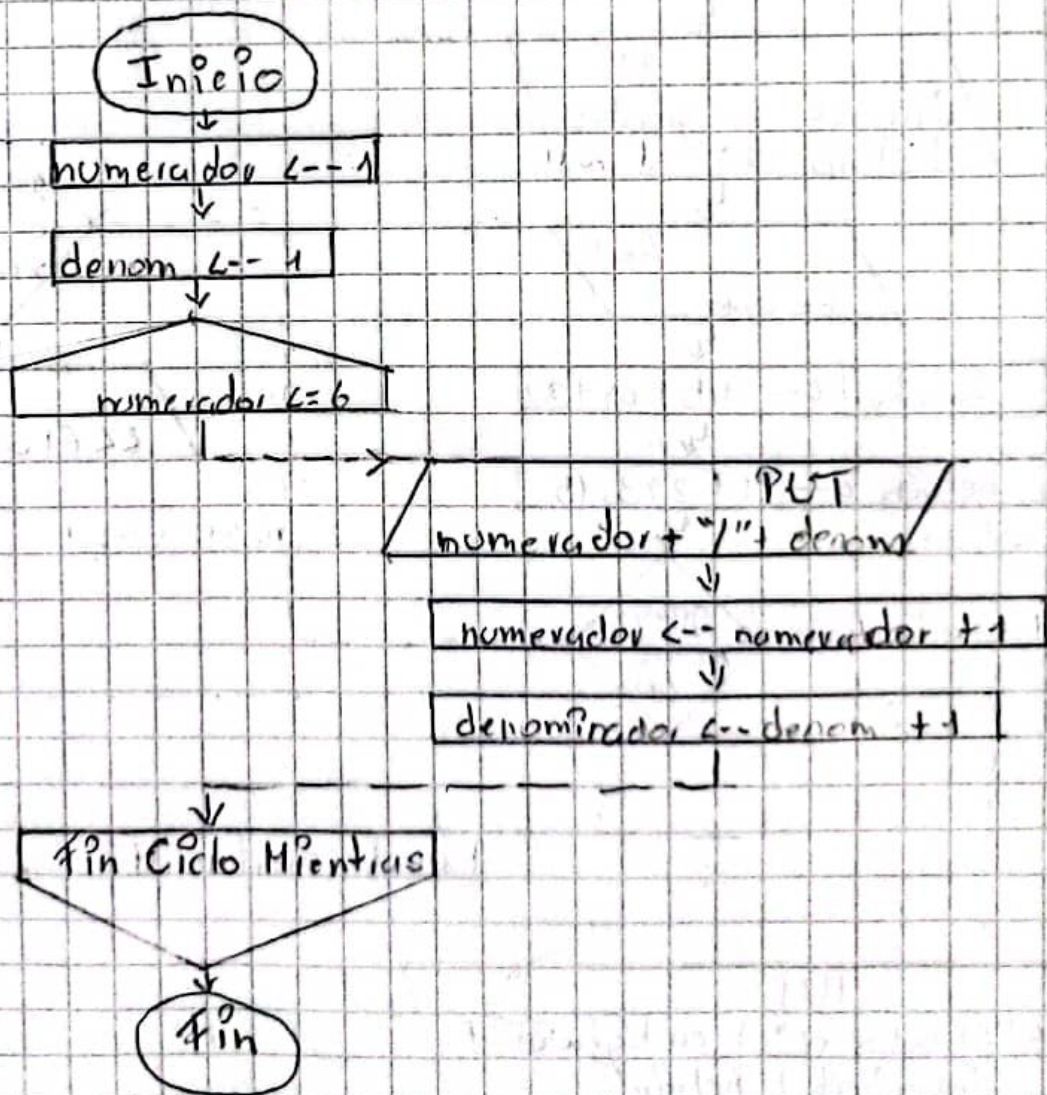 Inicio
numerador <-- 1
denom <-- 1
numerador <= 6
PUT
numerador + "/" + denom
numerador <-- numerador + 1
denominador <-- denom + 1
Fin Ciclo Mientras
Fin